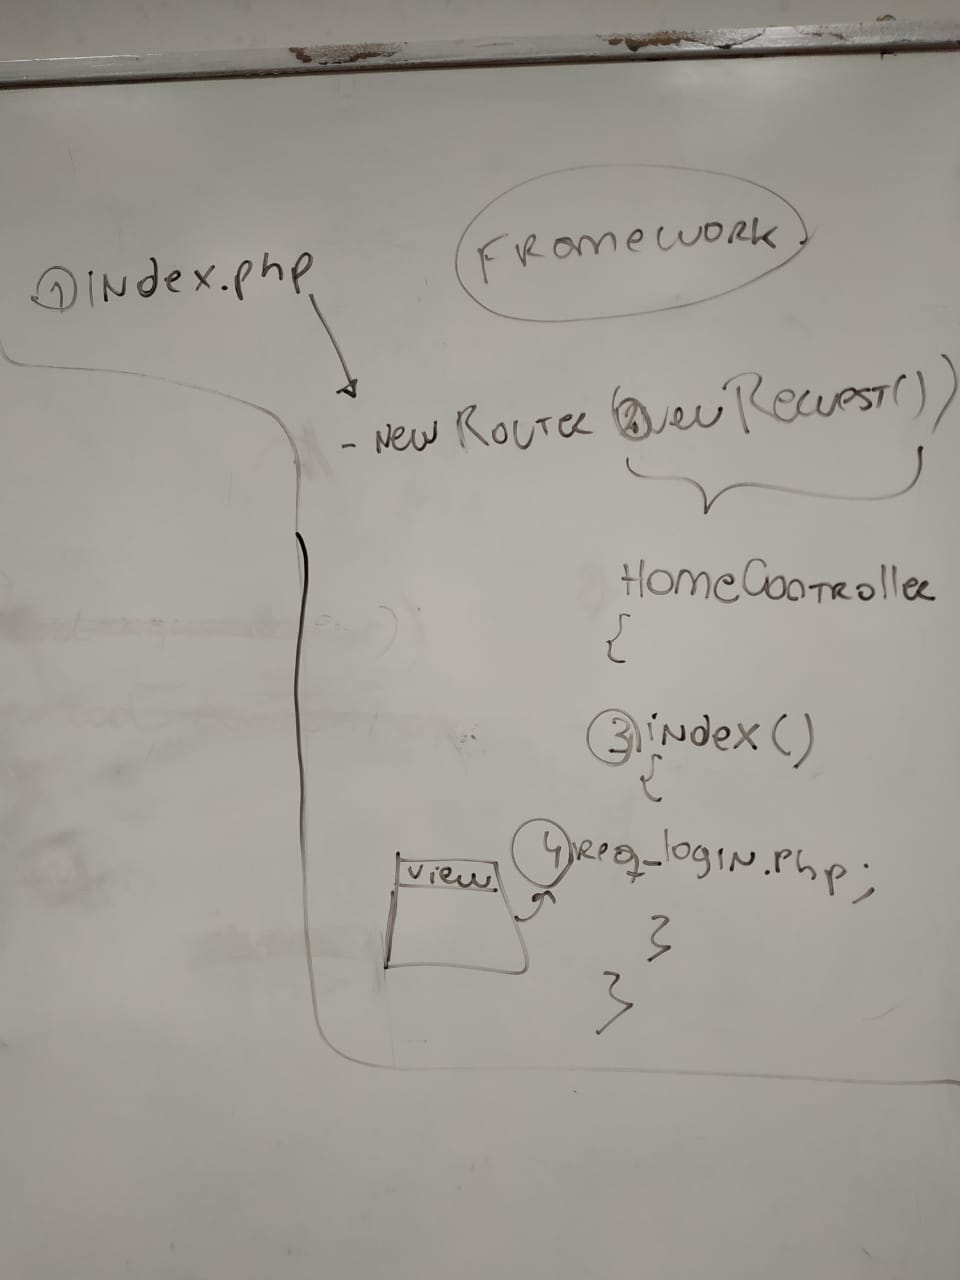 FRAMEWORK
① INdex.php
- NEW ROUTER (② NEW REQUEST())
HOMECONTROLLER
{
③ INdex()
{
④ REQ_LOGIN.php;
VIEW
}
}